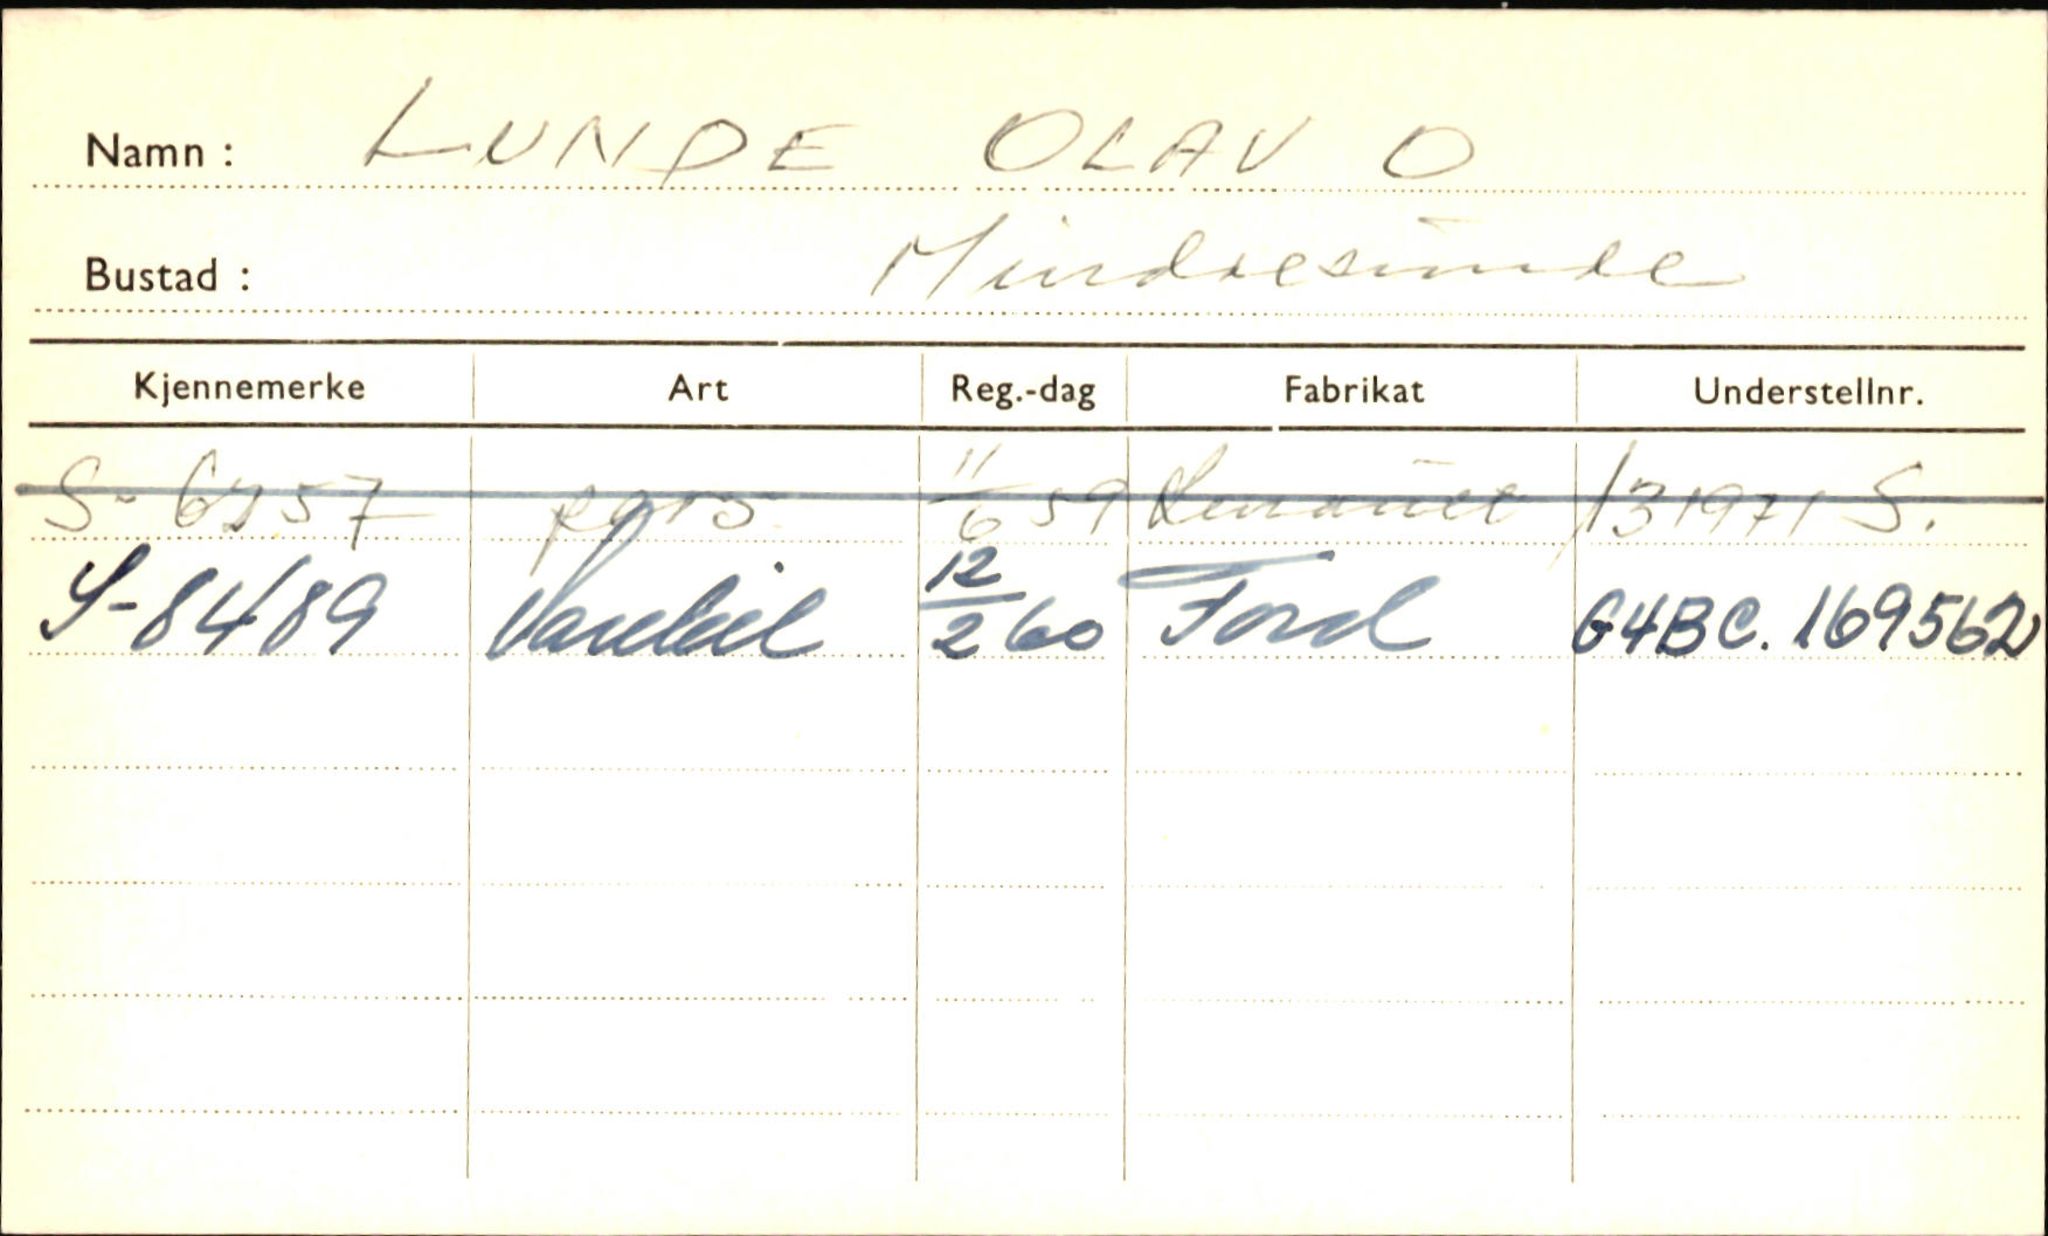 Namn : LUNDE OLAV O
Bustad : Mindresunde
Kjennemerke Art Reg.-dag Fabrikat Understellnr.
S- 6957 pers 11/6 59 Renault 131971 S.
S-8489 Varebil 12/2 60 Ford G4BC. 169562